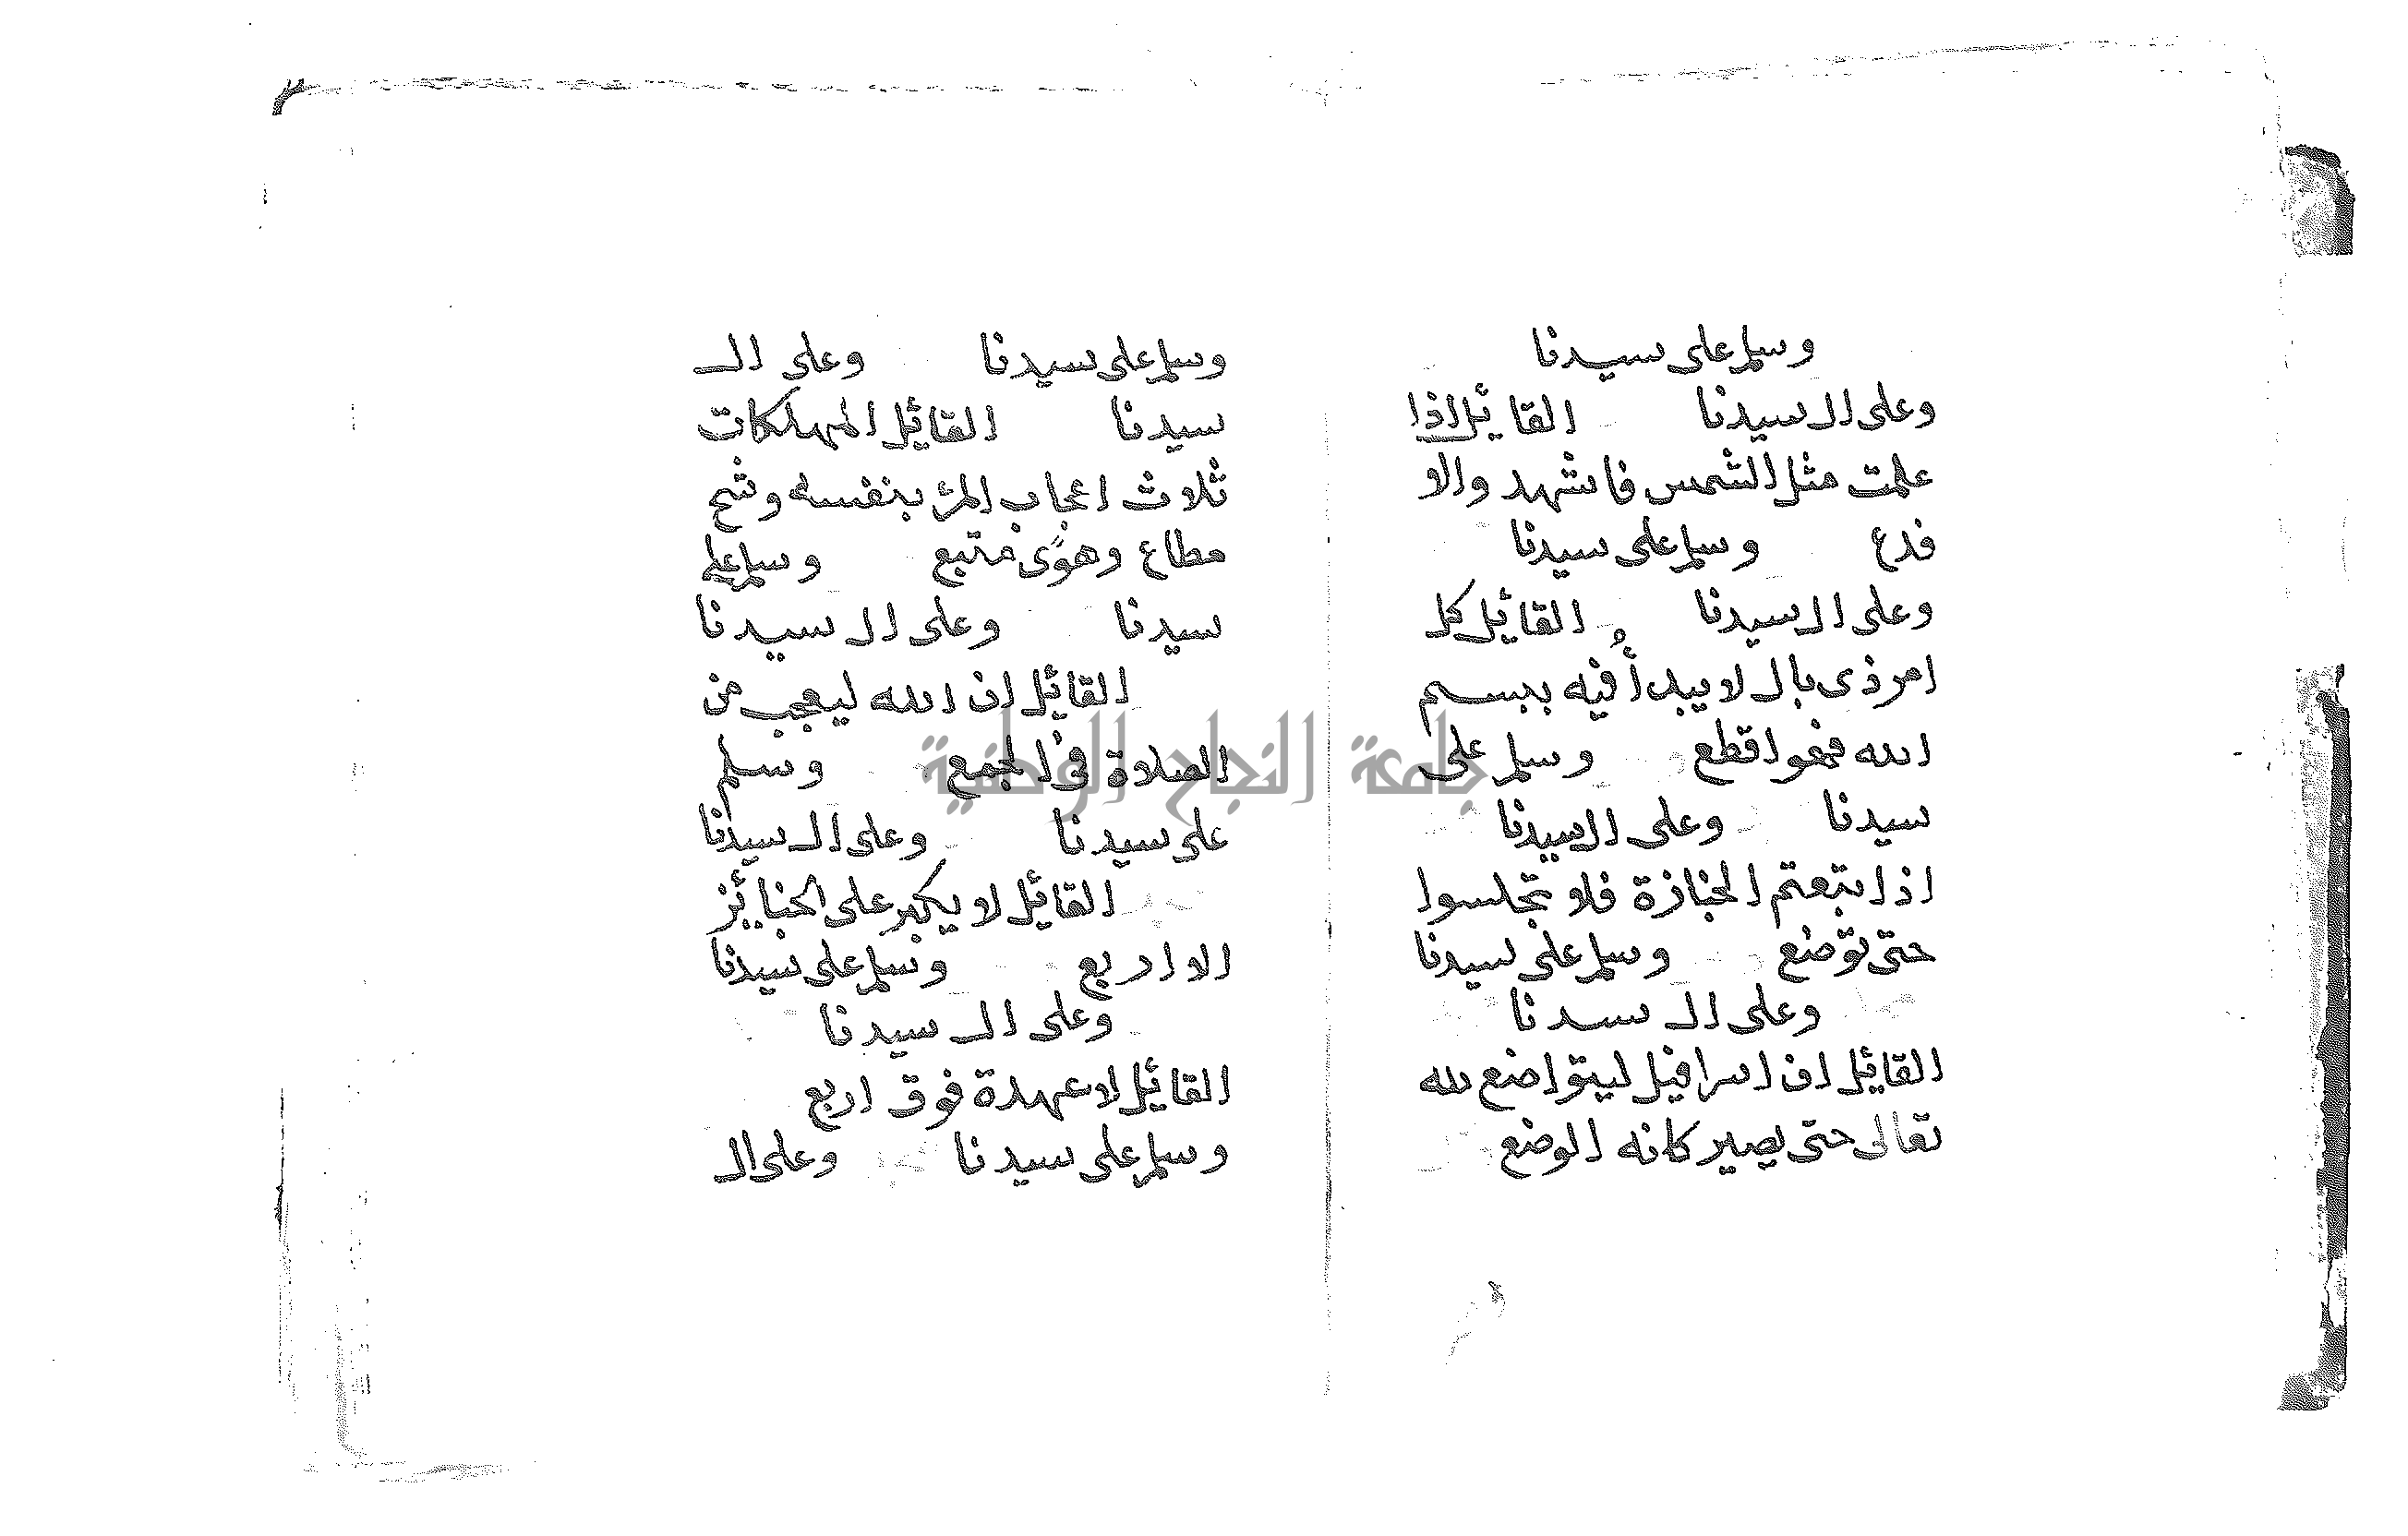 وسلم على سيدنا
وعلى ال سيدنا القائل اذا
علمت مثل الشمس فاشهد والا
فدع وسلم على سيدنا
وعلى ال سيدنا القائل كل
امر ذى بال لا يبدأ فيه ببسم
الله فهو اقطع وسلم على
سيدنا وعلى ال سيدنا
اذا تبعتم الجنازة فلا تجلسوا
حتى توضع وسلم على سيدنا
وعلى ال سيدنا
القائل ان اسرافيل ليتواضع لله
تعالى حتى يصير كانه الوضع
٢
وسلم على سيدنا وعلى ال
سيدنا القائل المهلكات
ثلاث اعجاب المرء بنفسه وشح
مطاع وهوًى متبع وسلم على
سيدنا وعلى ال سيدنا
القائل ان الله ليعجب من
الصلاة فى الجمع وسلم
على سيدنا وعلى ال سيدنا
القائل لا يكبر على الجنائز
الا اربع وسلم على سيدنا
وعلى ال سيدنا
القائل لا عهدة فوق اربع
وسلم على سيدنا وعلى ال
جامعة النجاح الوطنية